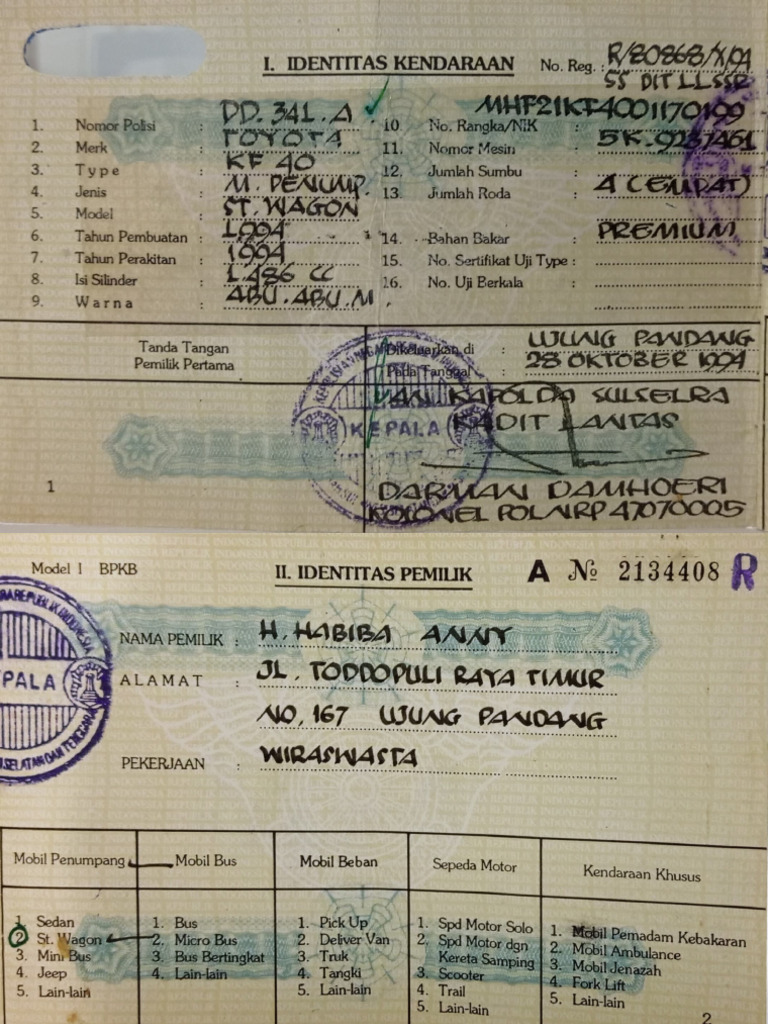 I. IDENTITAS KENDARAAN No. Reg. : R/80868/X/94
SS DIT LLSSR
1. Nomor Polisi : DD. 341. A
2. Merk : TOYOTA
3. Type : KF 40
4. Jenis : M. PENUMP.
5. Model : ST. WAGON
6. Tahun Pembuatan : 1994
7. Tahun Perakitan : 1994
8. Isi Silinder : 1.486 CC
9. Warna : ABU. ABU. M
10. No. Rangka/NIK : MHF21KF4001170199
11. Nomor Mesin : 5K-9237461
12. Jumlah Sumbu :
13. Jumlah Roda : 4 (EMPAT)
14. Bahan Bakar : PREMIUM
15. No. Sertifikat Uji Type :
16. No. Uji Berkala :
Tanda Tangan
Pemilik Pertama
Dikeluarkan di : UJUNG PANDANG
Pada Tanggal : 28 OKTOBER 1994
KAPOLDA SULSELRA
KADIT LANTAS
KEPALA
DARMAN DAMHOERI
KOLONEL POL NRP 47070025
1
Model 1 BPKB II. IDENTITAS PEMILIK A No 2134408 R
NAMA PEMILIK : H. HABIBA ANNY
ALAMAT : JL. TODDOPULI RAYA TIMUR
NO. 167 UJUNG PANDANG
PEKERJAAN : WIRASWASTA
REPUBLIK INDONESIA
PALA
SELATAN DAN TENGGARA
Mobil Penumpang
1. Sedan
2. St. Wagon
3. Mini Bus
4. Jeep
5. Lain-lain
Mobil Bus
1. Bus
2. Micro Bus
3. Bus Bertingkat
4. Lain-lain
Mobil Beban
1. Pick Up
2. Deliver Van
3. Truk
4. Tangki
5. Lain-lain
Sepeda Motor
1. Spd Motor Solo
2. Spd Motor dgn
Kereta Samping
3. Scooter
4. Trail
5. Lain-lain
Kendaraan Khusus
1. Mobil Pemadam Kebakaran
2. Mobil Ambulance
3. Mobil Jenazah
4. Fork Lift
5. Lain-lain
2